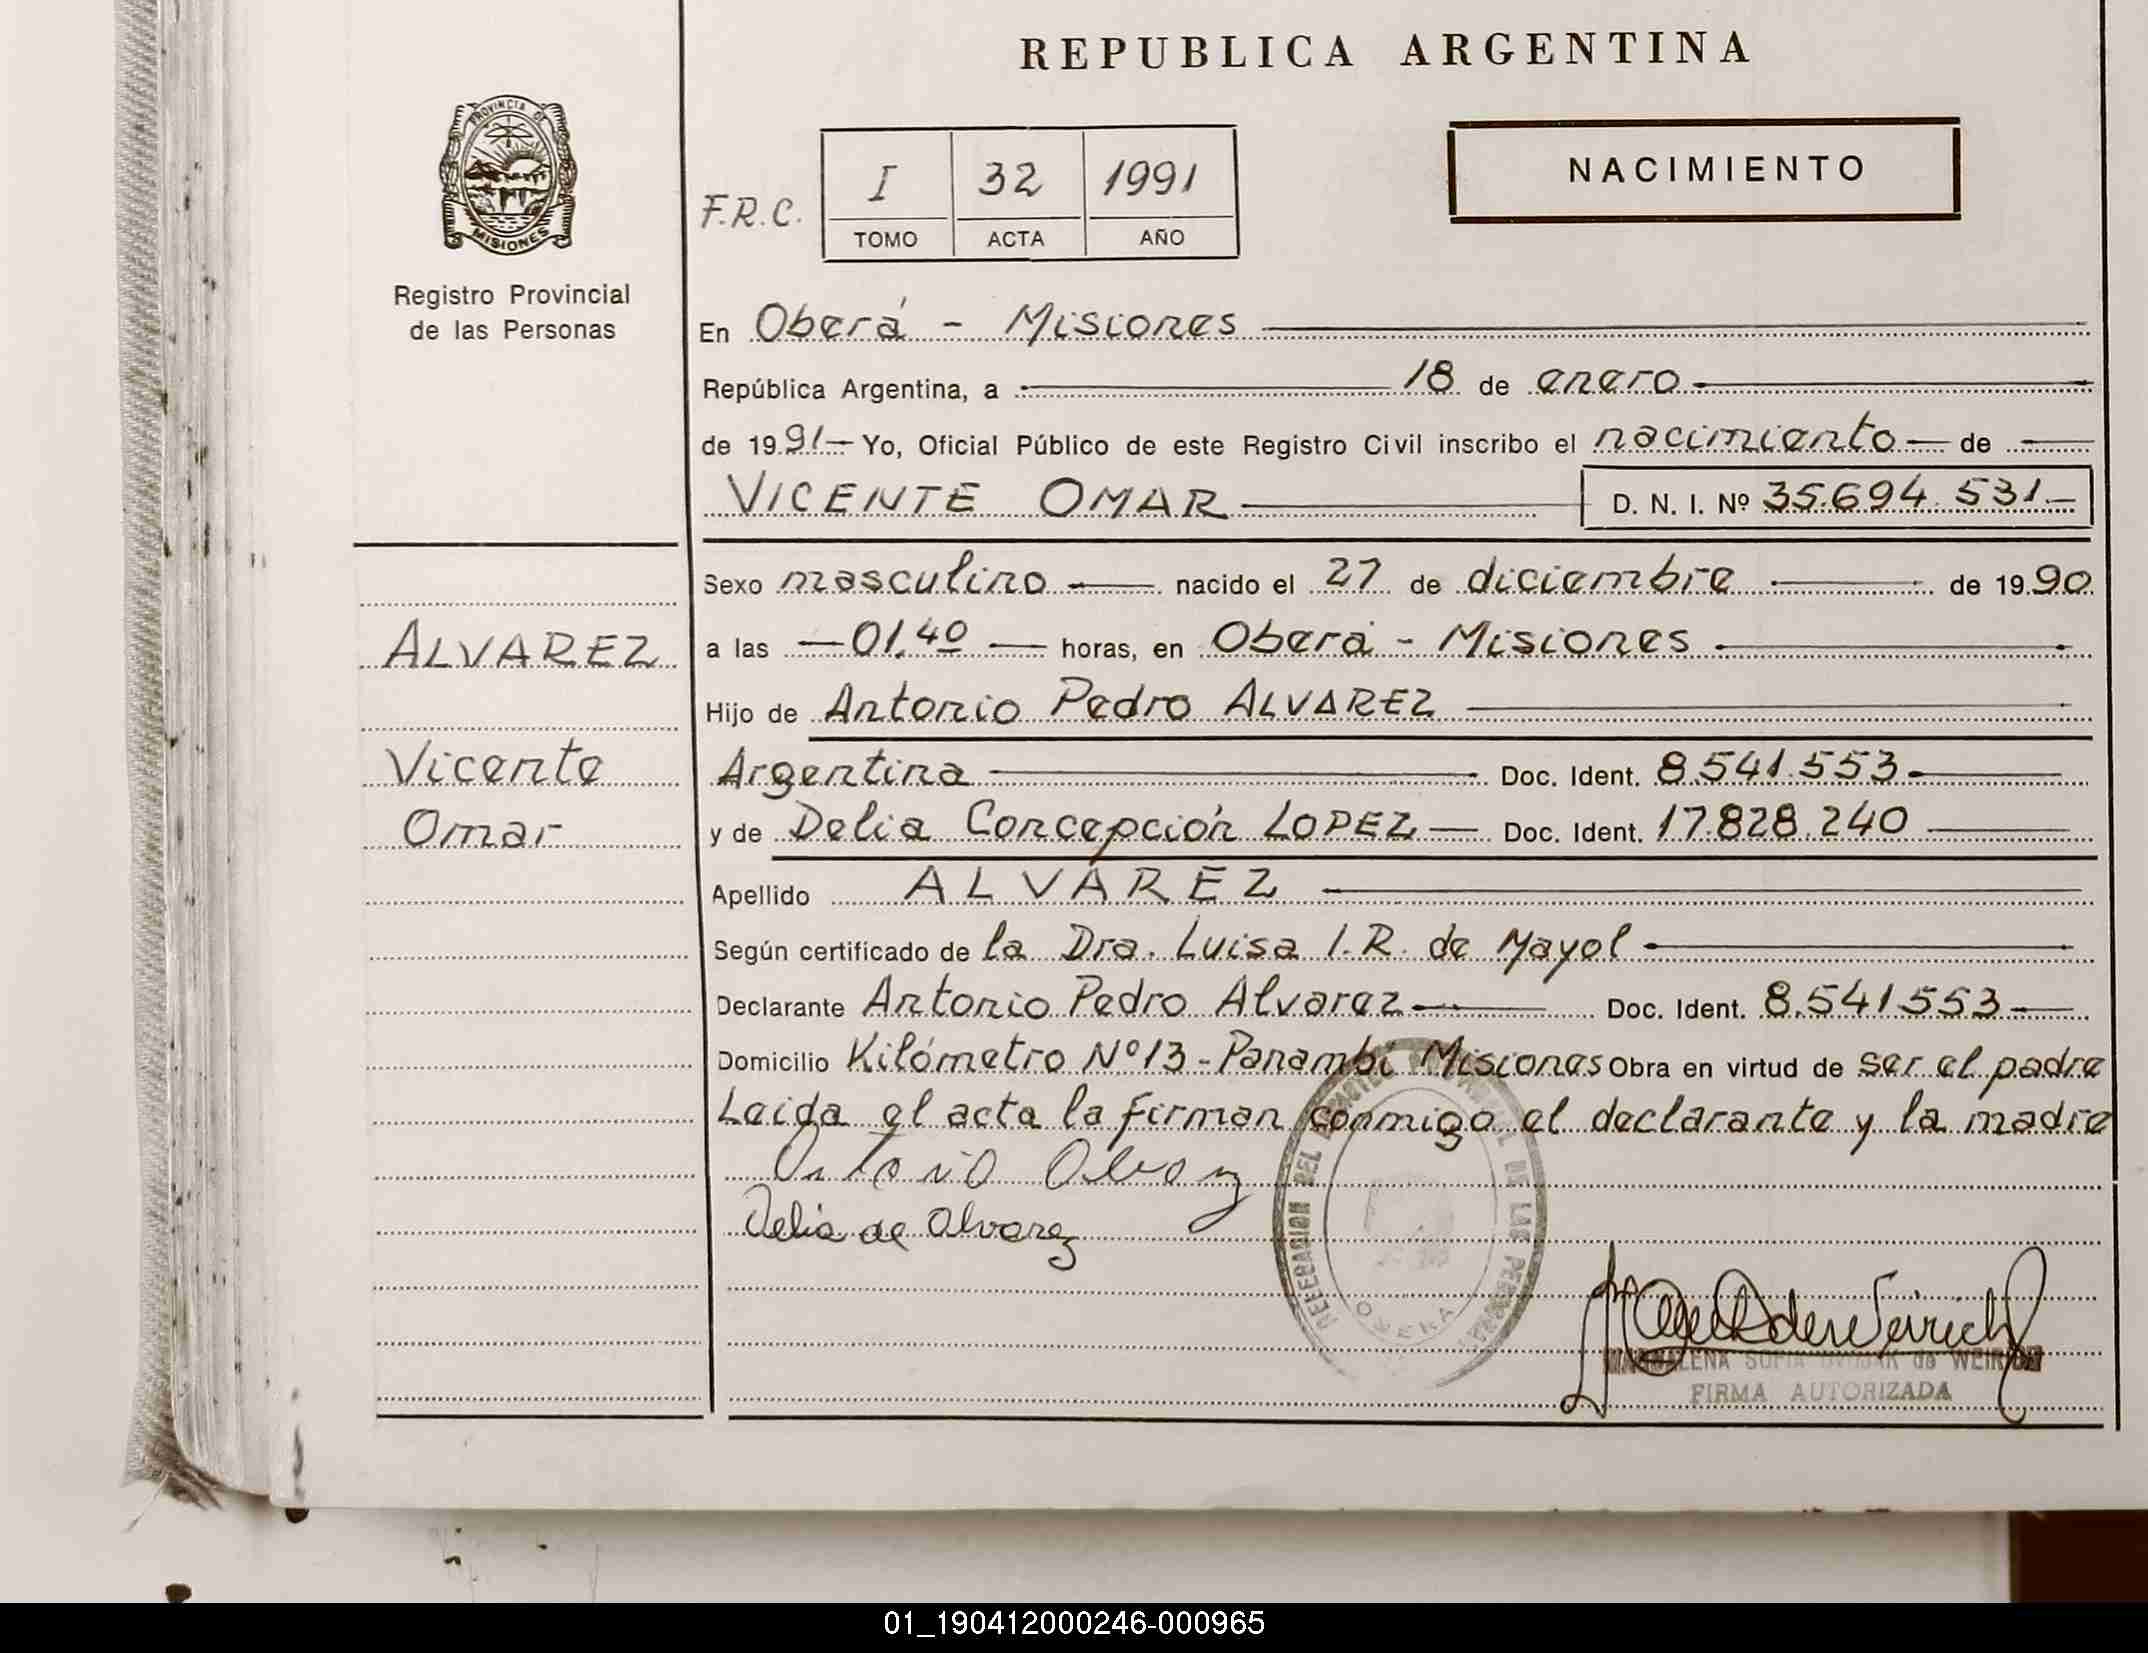 REPUBLICA ARGENTINA
PROVINCIA DE
MISIONES
Registro Provincial
de las Personas
NACIMIENTO
F.R.C.
I 32 1991
TOMO ACTA AÑO
En Oberá - Misiones
República Argentina, a 18 de enero
de 1991 Yo, Oficial Público de este Registro Civil inscribo el nacimiento de
VICENTE OMAR D. N. I. Nº 35.694.531.-
Sexo masculino nacido el 27 de diciembre de 1990
ALVAREZ
a las 01.40 horas, en Oberá - Misiones
Hijo de Antonio Pedro ALVAREZ
Vicente
Argentina Doc. Ident. 8.541.553.
Omar
y de Delia Concepción LOPEZ Doc. Ident. 17.828.240
Apellido ALVAREZ
Según certificado de la Dra. Luisa I. R. de Mayol
Declarante Antonio Pedro Alvarez Doc. Ident. 8.541.553
Domicilio Kilómetro Nº 13 - Panambí Misiones Obra en virtud de ser el padre
Leida el acta la firman conmigo el declarante y la madre
Delia de Alvarez
DEL DE LAS
OBERA
SOFIA de WEIRICH
FIRMA AUTORIZADA
01_190412000246-000965